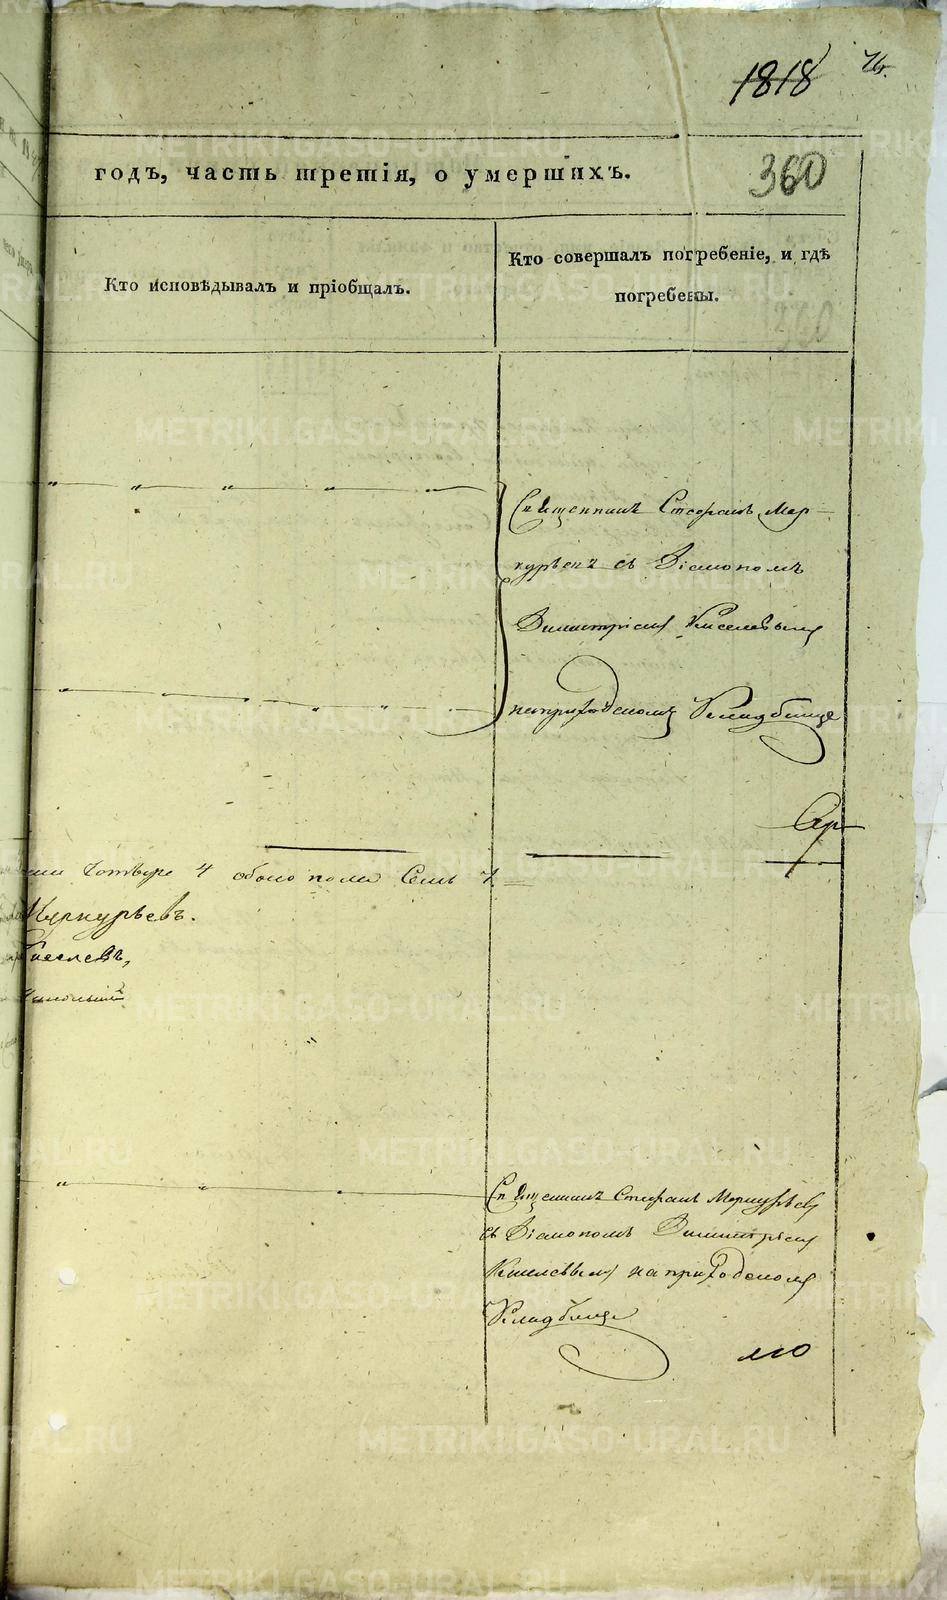 1818
76.
360
годъ, часть третія, о умершихъ.
Кто исповѣдывалъ и пріобщалъ.
Кто совершалъ погребеніе, и гдѣ
погребены.
Священникъ Стефанъ Мер-
курьевъ съ Діакономъ
Димитріемъ Киселевымъ
на приходскомъ Кладбище
четыре 4 обоего пола Семь 7
Меркурьевъ.
Священникъ Стефанъ Меркурьевъ
съ Діакономъ Димитріемъ
Киселевымъ на приходскомъ
Кладбище
METRIKI.GASO-URAL.RU